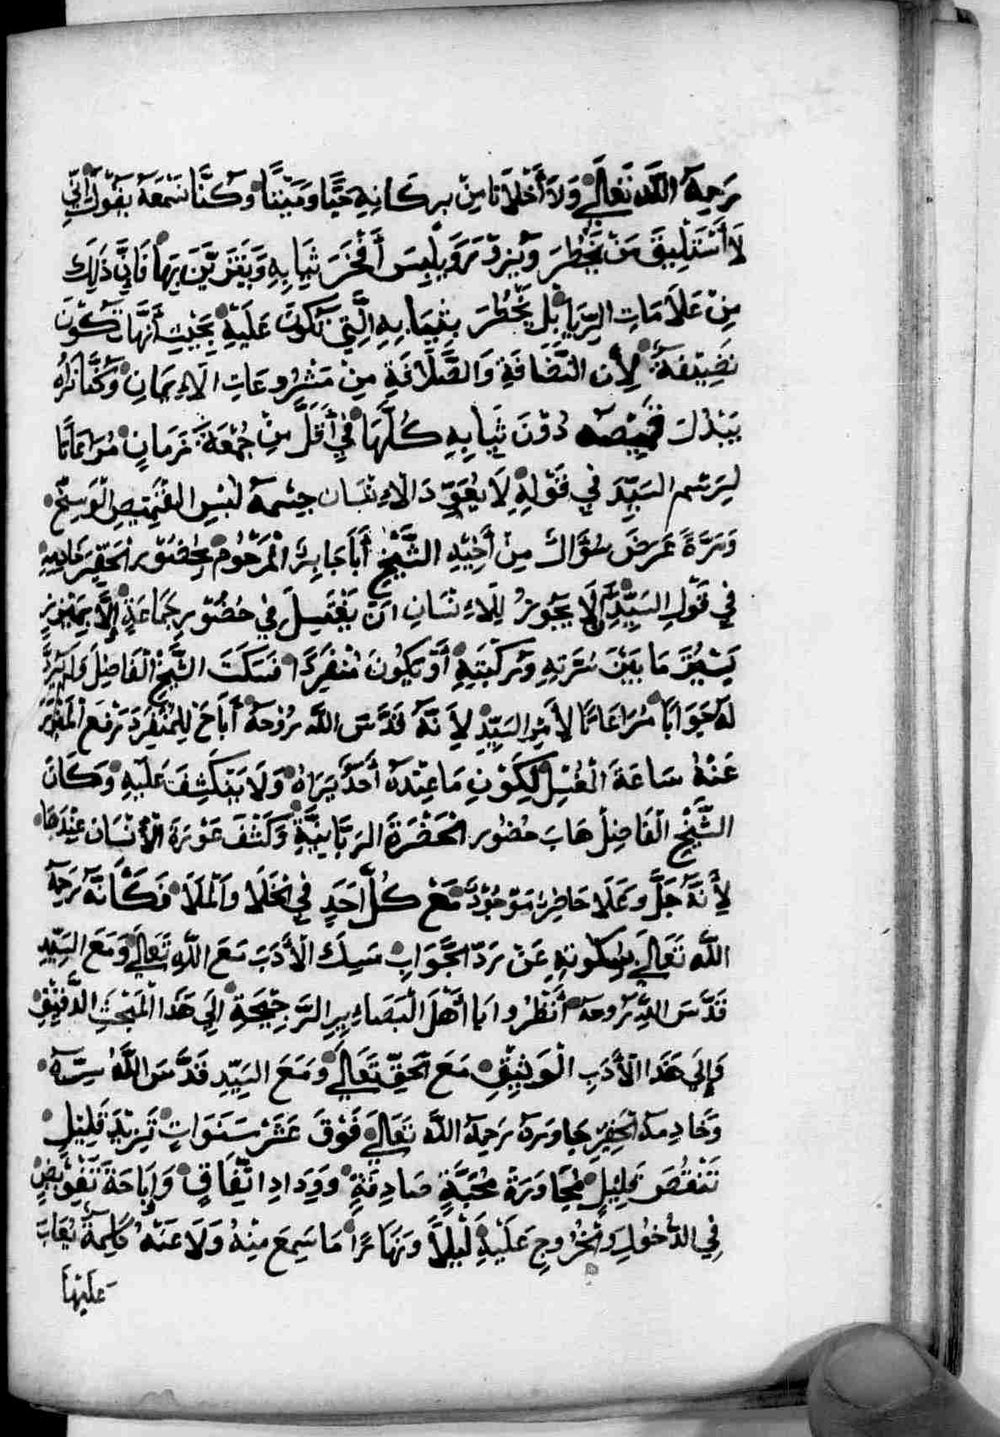 رَحِمَهُ اللّٰه تَعَالَى وَلَا أَخْلَانَا مِنْ بركَاتِهِ حَيًّا وَمَيْتًا وَكُنَّا نَسْمَعَهُ يَقُوْلُ إِنِّي
لَا أَسْتَلِيقَ مَنْ يَخْطُرَ وَيَزُوْرَ وَيَلْبِسَ أَفْخَرَ ثِيَابِهِ وَيَتَزَيَّنَ بِهَا فَاِنَّ ذٰلِكَ
مِنْ عَلَامَاتِ الرِّيَا بَلْ يَخْطُرَ بِثِيَابِهِ الَّتِي تَكُونُ عَلَيْهِ بِحَيْثِ أَنَّهَا تَكُوْنَ
نَضِيْفَةً لِأَن النَّضَافَةِ وَالصَّلَافَةِ مِنْ مَشْرُوعَاتِ الاءِيمَانِ وَكُنَّا نَرَاهُ
يَبْدُلَ قَمِيْصَه دُوْنَ ثِيَابِهِ كُلَّهَا فِي أَقَلَّ مِنْ جُمْعَةَ زَمَانٍ مُرَاعَاتًا
لِرَسْم السَيِّدَ فِي قَوْلِهِ لَا يُعَوِّدَ الاءِنْسَان جِسْمَهُ لُبْسِ القَمِيْصِ الْوَسِخْ
وَمَرَّةً عَرَضَ سُؤَالَ مِنْ أَخِيْهِ الشَّيْخْ أَبَا جَابِرَ الْمَرْحُوْم بِحُضُوْرِ الْحَقِيْرِ خَادِمِهِ
فِي قَوْلِ السَيِّدِ لَا يَجُوْزُ لِلاءِنْسَانِ أَنْ يَغْتَسِلَ فِي حُضُوْرِ جَمَاعَةٍ إِلَّا بِمَيْزَرٍ
يَسْتُرَ مَا بَيْنَ سُرَتِهِ وَرُكْبَتِهِ أَوْ يَكُونَ مُنْفَرِدًا فَسَكَتَ الشَّيْخْ الْفَاضِلَ وَلَمْ يَرُدَّ
لَهُ جَوَابًا مُرَاعَاتًا لِأَمْرِ السَيِّدِ لِأَنَّهُ قَدَّسَ اللّٰه رُوْحَهُ أَبَاحَ لِلمُنْفَرِدَ بَرَفْعِ الْمَيْزَرَ
عَنْهُ سَاعَةَ الْغُسْلِ لِكَوْنِ مَا عِنْدَهُ أَحَدٌ يَرَاهُ وَلَا يَنْكَشِفَ عَلَيْهِ وَكَانَ
الشَّيْخِ الْفَاضِلْ هَابَ حُضُورِ الْحَضْرَةَ الرَبَّانِيَّةِ وَكَشْفَ عَوْرَةَ الْأنْسَان عِنْدَهَا
لِأَنَّهُ جَلَّ وَعَلَا حَاضِرْ مَوْجُوْدْ مَعْ كُلِّ أَحَدٍ فِي الْخَلَا وَالْمَلَا فَكَأَنَّهُ رَحِمَهُ
اللّٰه تَعَالَى بِسُكُوتِهِ عَنْ رَدّ الجَّوَابِ سَلَكَ الْأَدَبَ مَعَ اللّٰهِ تَعَالَى وَمَعَ السَيِّدِ
قَدَّسَ اللّٰه رُوحَهُ أَنْظُرُوا يَا أَهْلَ الْبَصَاءِيرِ الرَجِيْحَةِ إِلَى هَذَا الْمَبْحَثِ الدَّقِيْقِ
وَإِلَى هَذَا الْأَدَبِ الْوَثِيْقِ مَعَ الْحَقّ تَعَالَى وَمَعَ السَيِّدِ قَدَّسَ اللّٰهُ سِرَّهُ
وَخَادِمَهُ الْحَقِيْرِ جَاوَرَهُ رَحِمَهُ اللّٰه تَعَالَى فَوْقَ عَشَرْ سَنَوَاتٍ تَزِيْدَ قَلِيْلٍ
تَنْقُصَ قَلِيْلٍ مُجَاوَرَةْ مُحَبَّةٍ صَادِقَةٍ وَوِدَادِ اتِّفَاقٍ وَإِبَاحَةَ تَفْوِيْضٍ
فِي الدُّخُولِ وَالْخُرُوجِ عَلَيْهِ لَيْلًا وَنَهَارًا مَا سَمِعَ مِنْهُ وَلَا عَنْهُ كَلِمَةً يُعَابَ
عَلَيْهَا